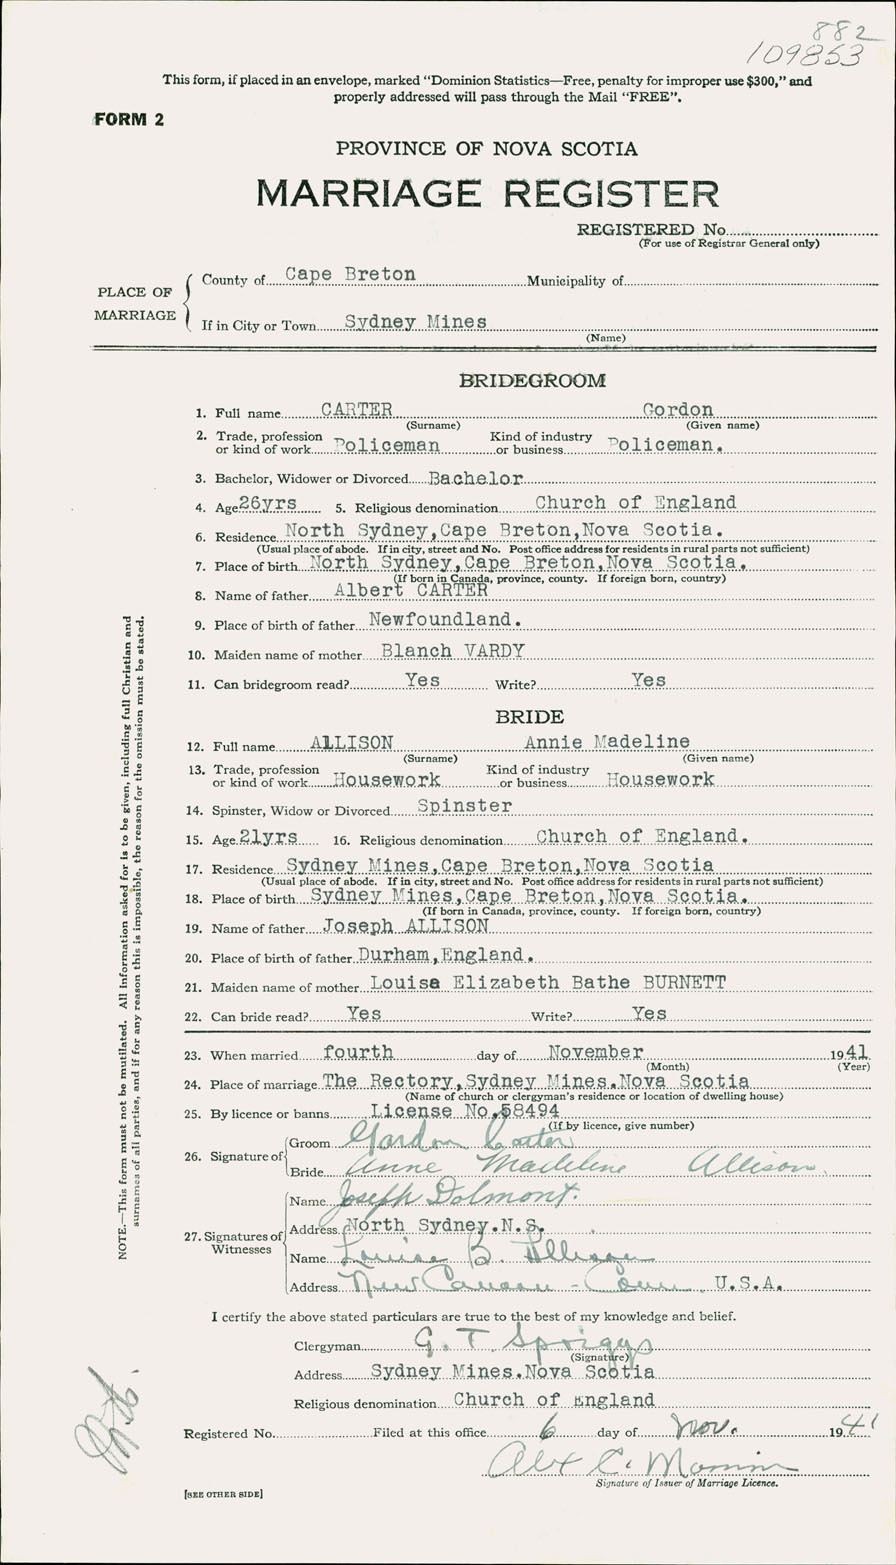 882
109853
This form, if placed in an envelope, marked "Dominion Statistics—Free, penalty for improper use $300," and
properly addressed will pass through the Mail "FREE".
FORM 2
PROVINCE OF NOVA SCOTIA
MARRIAGE REGISTER
REGISTERED No.
(For use of Registrar General only)
PLACE OF MARRIAGE
County of Cape Breton Municipality of
If in City or Town Sydney Mines
(Name)
BRIDEGROOM
1. Full name CARTER Gordon
(Surname) (Given name)
2. Trade, profession or kind of work Policeman Kind of industry or business Policeman.
3. Bachelor, Widower or Divorced Bachelor
4. Age 26yrs 5. Religious denomination Church of England
6. Residence North Sydney,Cape Breton,Nova Scotia.
(Usual place of abode. If in city, street and No. Post office address for residents in rural parts not sufficient)
7. Place of birth North Sydney,Cape Breton,Nova Scotia.
(If born in Canada, province, county. If foreign born, country)
8. Name of father Albert CARTER
9. Place of birth of father Newfoundland.
10. Maiden name of mother Blanch VARDY
11. Can bridegroom read? Yes Write? Yes
BRIDE
12. Full name ALLISON Annie Madeline
(Surname) (Given name)
13. Trade, profession or kind of work Housework Kind of industry or business Housework
14. Spinster, Widow or Divorced Spinster
15. Age 21yrs 16. Religious denomination Church of England.
17. Residence Sydney Mines,Cape Breton,Nova Scotia
(Usual place of abode. If in city, street and No. Post office address for residents in rural parts not sufficient)
18. Place of birth Sydney Mines,Cape Breton,Nova Scotia.
(If born in Canada, province, county. If foreign born, country)
19. Name of father Joseph ALLISON
20. Place of birth of father Durham,England.
21. Maiden name of mother Louisa Elizabeth Bathe BURNETT
22. Can bride read? Yes Write? Yes
23. When married fourth day of November 1941
(Month) (Year)
24. Place of marriage The Rectory,Sydney Mines.Nova Scotia
(Name of church or clergyman's residence or location of dwelling house)
25. By licence or banns License No.58494
(If by licence, give number)
26. Signature of
Groom Gordon Carter
Bride Anne Madeline Allison.
27. Signatures of Witnesses
Name Joseph Dolmont.
Address North Sydney.N.S.
Name Louise B. Allison
Address New Canaan - Conn. U.S.A.
I certify the above stated particulars are true to the best of my knowledge and belief.
Clergyman G. T. Spriggs
(Signature)
Address Sydney Mines.Nova Scotia
Religious denomination Church of England
Registered No. Filed at this office 6 day of Nov. 1941
Alex C.
Signature of Issuer of Marriage Licence.
[SEE OTHER SIDE]
NOTE.—This form must not be mutilated. All information asked for is to be given, including full Christian and
surnames of all parties, and if for any reason this is impossible, the reason for the omission must be stated.